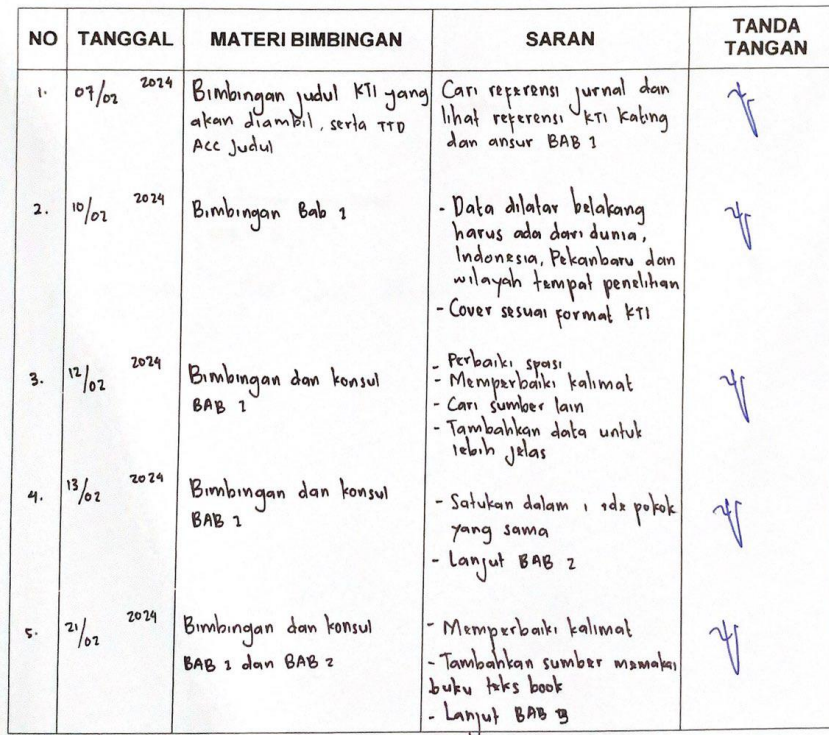 NO TANGGAL MATERI BIMBINGAN SARAN TANDA TANGAN
1. 07/02 2024 Bimbingan judul KTI yang akan diambil, serta TTD Acc Judul
Cari referensi jurnal dan
lihat referensi KTI Kating
dan ansur BAB 1
2. 10/02 2024 Bimbingan Bab 1
- Data dilatar belakang
harus ada dari dunia,
Indonesia, Pekanbaru dan
wilayah tempat penelitian
- Cover sesuai format KTI
3. 12/02 2024 Bimbingan dan konsul
BAB 1
- Perbaiki spasi
- Memperbaiki kalimat
- Cari sumber lain
- Tambahkan data untuk
lebih jelas
4. 13/02 2024 Bimbingan dan konsul
BAB 1
- Satukan dalam 1 ide pokok
yang sama
- Lanjut BAB 2
5. 21/02 2024 Bimbingan dan konsul
BAB 1 dan BAB 2
- Memperbaiki kalimat
- Tambahkan sumber memakai
buku teks book
- Lanjut BAB 3